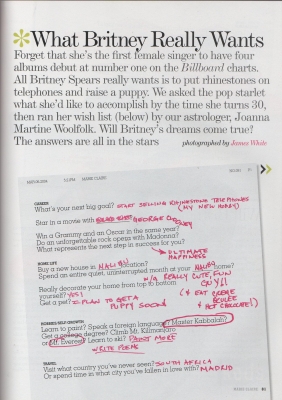 What Britney Really Wants
Forget that she's the first female singer to have four
albums debut at number one on the Billboard charts.
All Britney Spears really wants is to put rhinestones on
telephones and raise a puppy. We asked the pop starlet
what she'd like to accomplish by the time she turns 30,
then ran her wish list (below) by our astrologer, Joanna
Martine Woolfolk. Will Britney's dreams come true?
The answers are all in the stars
photographed by James White
CAREER
What's your next big goal? START SELLING RHINESTONE TELEPHONES
(MY NEW HOBBY)
Star in a movie with GEORGE CLOONEY
Win a Grammy and an Oscar in the same year?
Do an unforgettable rock opera with Madonna?
What represents the next step in success for you?
ULTIMATE
HAPPINESS
HOME LIFE
Buy a new house in MALIBU
Spend an entire quiet, uninterrupted month at your home?
W/A REALLY CUTE, FUN
GUY!!
Really decorate your home from top to bottom
yourself? YES!
Get a pet? I PLAN TO GET A
PUPPY SOON!
(& EAT CREME
BRULEE
& HOT CHOCOLATE!)
HOBBIES/SELF-GROWTH
Learn to paint? Speak a foreign language? Master Kabbalah?
Get a college degree? Climb Mt. Kilimanjaro
or Mt. Everest? Learn to ski? PAINT MORE
WRITE POEMS
TRAVEL
Visit what country you've never seen? SOUTH AFRICA
Or spend time in what city you've fallen in love with? MADRID